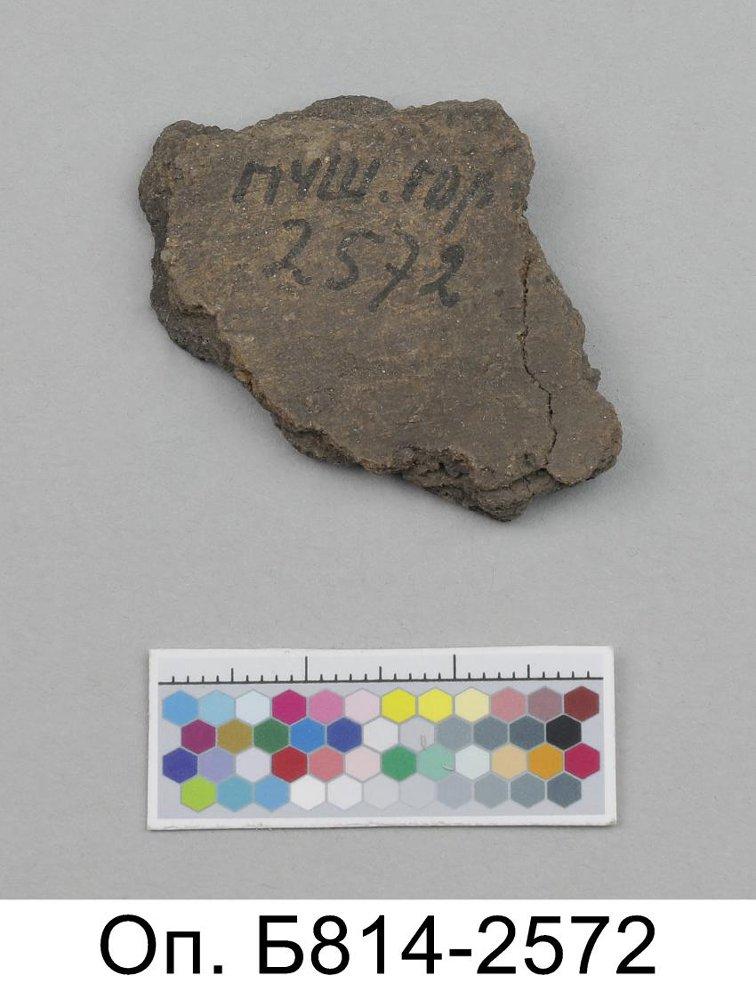 пчш. гор.
2572
Оп. Б814-2572